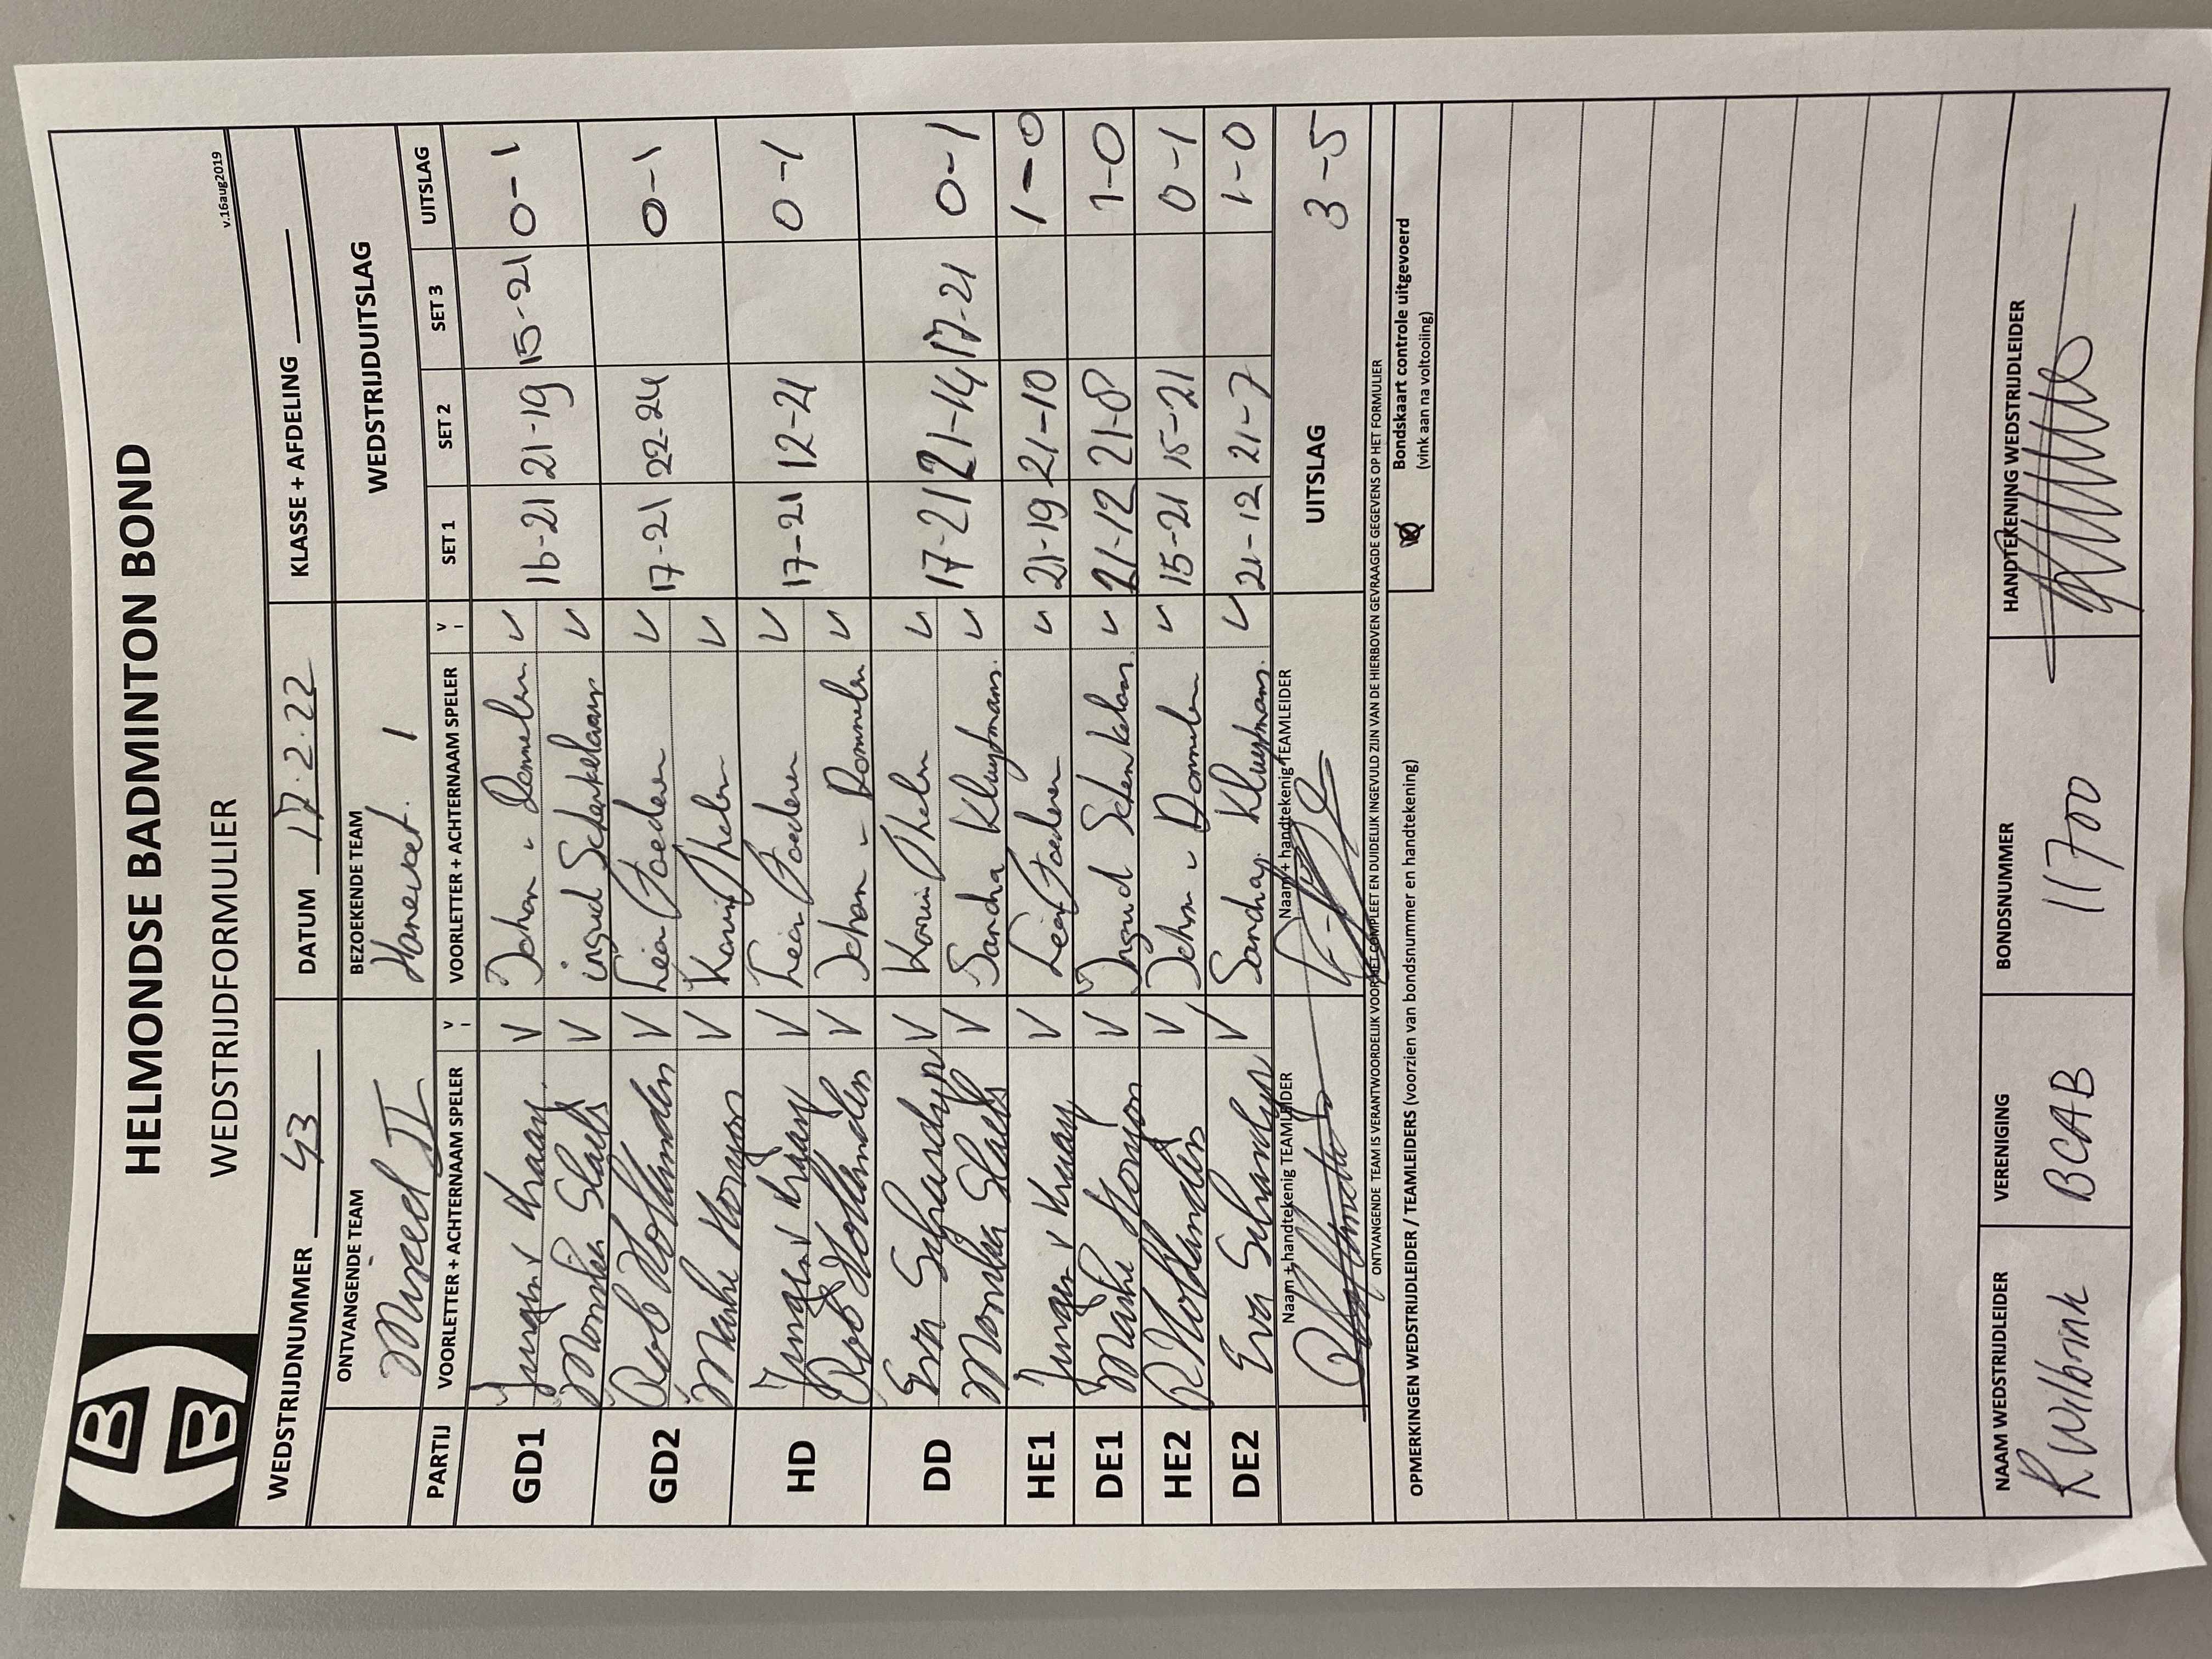 HELMONDSE BADMINTON BOND
WEDSTRIJDFORMULIER
v.16aug2019
WEDSTRIJDNUMMER 43 DATUM 17.2.22 KLASSE + AFDELING
ONTVANGENDE TEAM BEZOEKENDE TEAM WEDSTRIJDUITSLAG
II 1
PARTIJ VOORLETTER + ACHTERNAAM SPELER V VOORLETTER + ACHTERNAAM SPELER V SET 1 SET 2 SET 3 UITSLAG
GD1 Jurgen v Kraaij V Johan v Dommelen V 16-21 21-19 15-21 0-1
Monika Slaets V ingrid Schenkelaars V
GD2 Rob Hollanders V Leier V 17-21 22-24 0-1
Maike V Karin Thelen V
HD Jurgen v Kraaij V Leier V 17-21 12-21 0-1
Rob Hollanders V Johan v Dommelen V
DD Eva V Karin Thelen V 17-21 21-14 17-21 0-1
Monika Slaets V Sandra Kluytmans. V
HE1 Jurgen v Kraaij V V 21-19 21-10 1-0
DE1 Maike V Ingrid Schenkelaars. V 21-12 21-8 1-0
HE2 R Hollanders V Johan v Dommelen V 15-21 15-21 0-1
DE2 Eva V Sandra Kluytmans. V 21-12 21-7 1-0
Naam + handtekenig TEAMLEIDER Naam + handtekenig TEAMLEIDER UITSLAG 3-5
ONTVANGENDE TEAM IS VERANTWOORDELIJK VOOR HET COMPLEET EN DUIDELIJK INGEVULD ZIJN VAN DE HIERBOVEN GEVRAAGDE GEGEVENS OP HET FORMULIER
OPMERKINGEN WEDSTRIJDLEIDER / TEAMLEIDERS (voorzien van bondsnummer en handtekening)
Bondskaart controle uitgevoerd
(vink aan na voltooiing)
NAAM WEDSTRIJDLEIDER VERENIGING BONDSNUMMER HANDTEKENING WEDSTRIJDLEIDER
R Wilbrink BCAB 11700